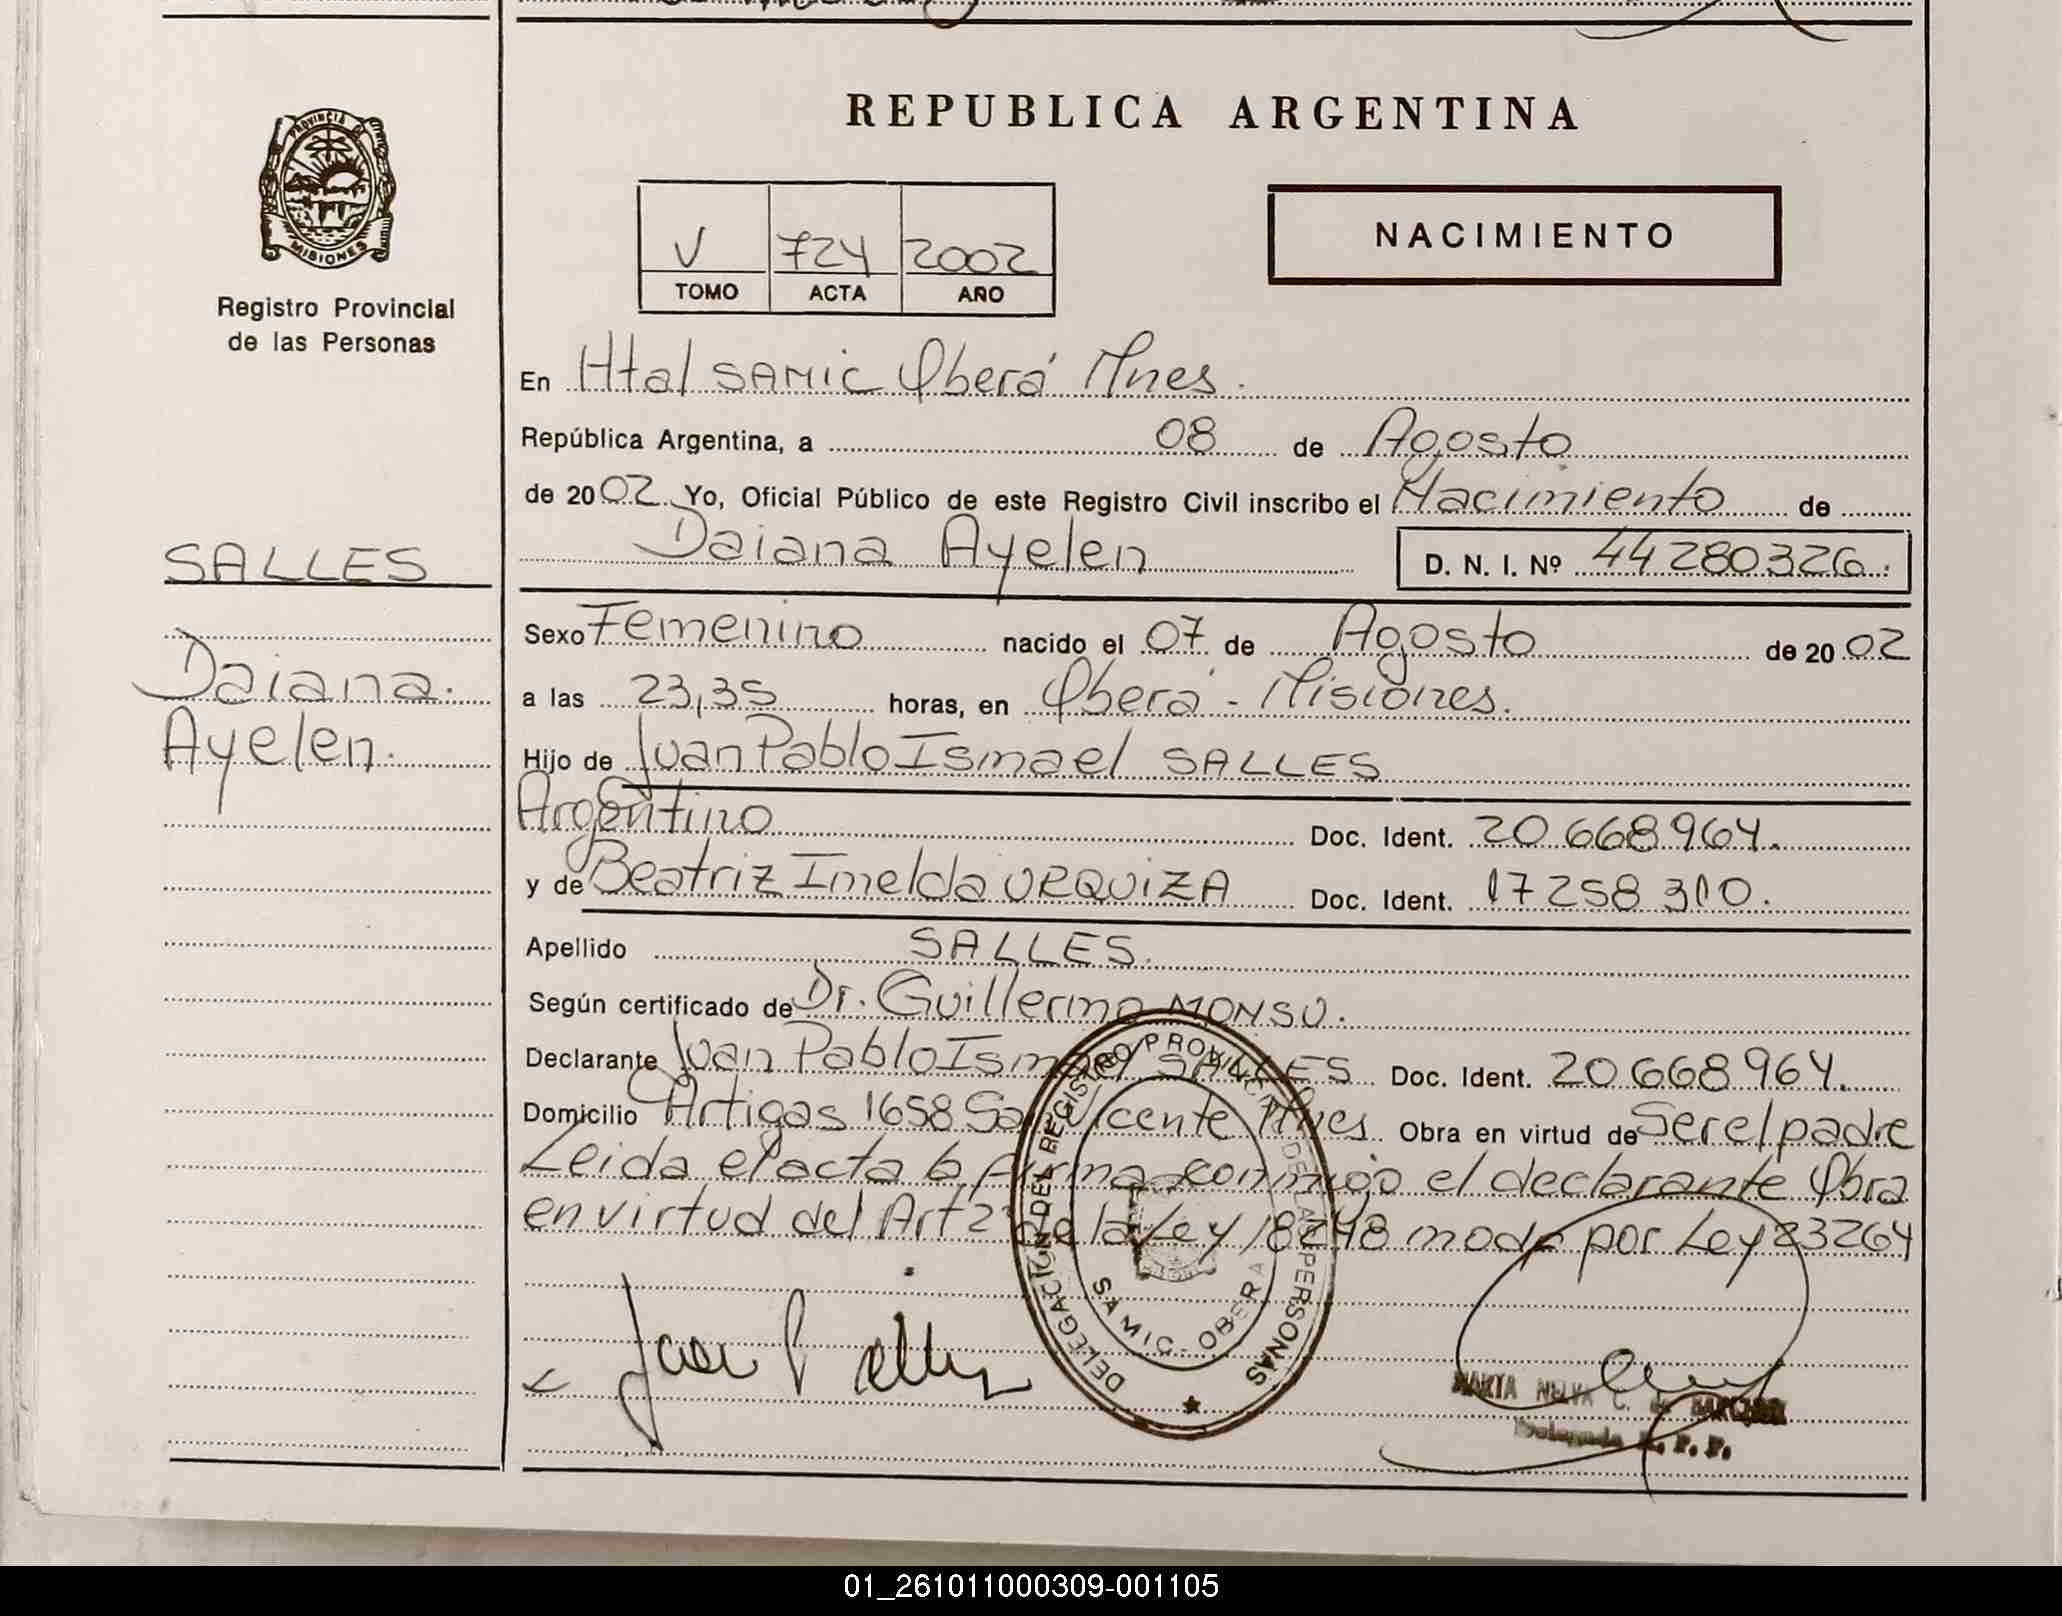 REPUBLICA ARGENTINA
PROVINCIA DE
MISIONES
Registro Provincial
de las Personas
V 724 2002
TOMO ACTA AÑO
NACIMIENTO
En Htal SAMIC Oberá Mnes.
República Argentina, a 08 de Agosto
de 2002 Yo, Oficial Público de este Registro Civil inscribo el Nacimiento de
Daiana Ayelen D. N. I. Nº 44280326.
SALLES
Daiana.
Ayelen.
Sexo Femenino nacido el 07 de Agosto de 2002
a las 23,35 horas, en Oberá - Misiones.
Hijo de Juan Pablo Ismael SALLES
Argentino Doc. Ident. 20.668.964.
y de Beatriz Imelda URQUIZA Doc. Ident. 17258310.
Apellido SALLES.
Según certificado de Dr. Guillermo MONSU.
Declarante Juan Pablo Ismael SALLES Doc. Ident. 20.668.964.
Domicilio Artigas 1658 San Vicente Mnes Obra en virtud de Ser el padre
Leida el acta la firma conmigo el declarante Obra
en virtud del Art 2º de la Ley 18248 modf por Ley 23264
DELEGACION DEL REGISTRO PROVINCIAL DE LAS PERSONAS
SAMIC - OBERA
Juan P Salles
MARTA NELVA C. de
Delegada R. P. P.
01_261011000309-001105